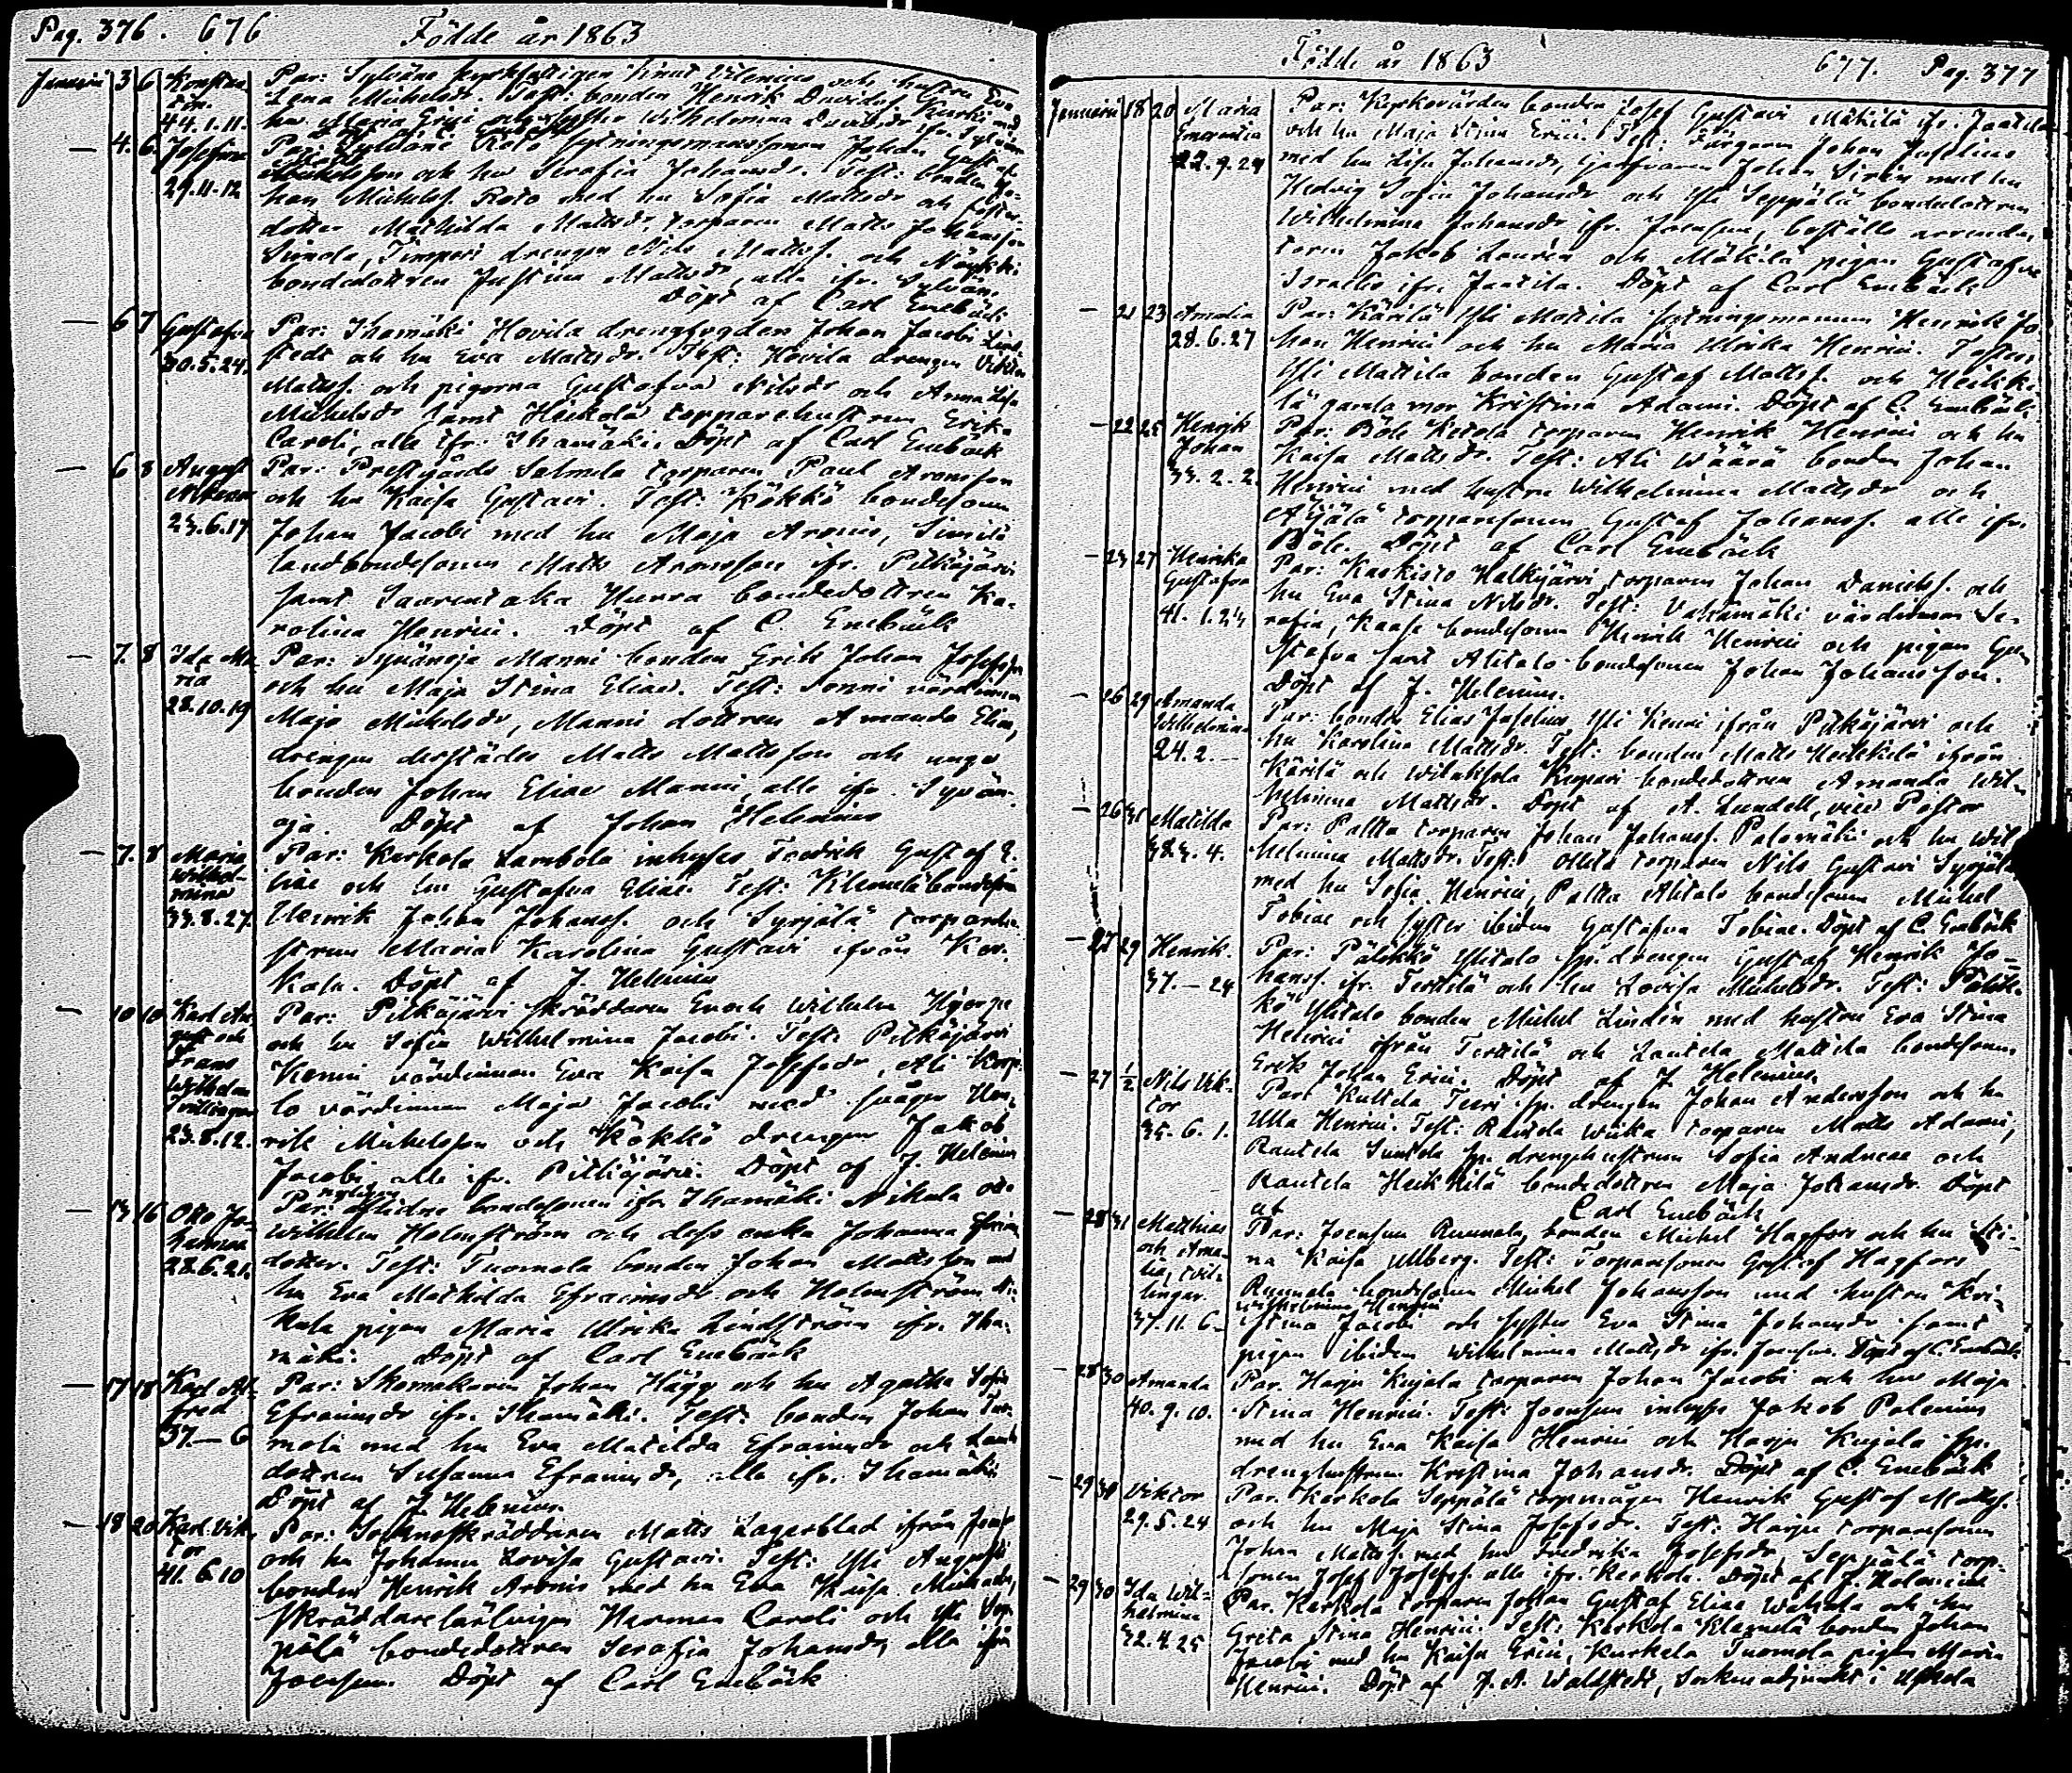 Pag. 376. 676 Födde år 1863
Januarii 3 6 Konstan Par: Sylvänä Knut Vilenius och hustru Eva
tin. Lena Michelsdr. Test: bonden Henrik Davidss. Kurki med
44.1.11. hu Maria Erici och Wilhelmina Davidsdr ifr. Sylvänä
— 4. 6. Josefina Par: Sylvänä Roto sytningsmanssonen Johan Gustaf
Michelsson och hu Serafia Johansdr. Test: bonden Jo-
29.11.12 han Michelss. Roto med hu Sofia Mattsdr och foster-
dotter Mathilda Mattsdr, torparen Matts Johansson
Simola, Timperi drengen Nils Mattss. och
bondedottren Justina Mattsdr, alla ifr. Sylvänä
Döpt af Carl Enebäck
— 6 7 Gustafva Par: Ihamäki Hovila Johan Jacobi Lind-
30.5.24. stedt och hu Eva Mattsdr. Test: Hovila drengen Viktor
Mattss. och pigorna Gustafva Nilsdr och Anna Lisa
Michelsdr samt Heikola torparehustrun Erika
Caroli, alla ifr. Ihamäki. Döpt af Carl Enebäck
— 6 8 August Par: Prestgårds Salmela torparen Paul Aronsson
och hu Kaisa Gustavi. Test. Kökkö bondesonen
23.6.17 Johan Jacobi med hu Maja Aronis, Simila
landbondesonen Matts Aronsson ifr. Pitkäjärvi
samt Saarentaka Hurra bondedottren Ka-
rolina Henrici. Döpt af C. Enebäck
— 7. 8 Ida Ma- Par: Syvänoja Manni bonden Erik Johan Josefsson
ria och hu Maja Stina Eliae. Test: Sonni värdinnan
28.10.19 Maja Michelsdr, Manni dottren Amanda Eliae,
drengen derstädes Matts Mattsson och unga
bonden Johan Eliae Manni, alle ifr. Syvän-
oja. Döpt af Johan Helenius
— 7. 8 Maria Par: Karkola Lambola inhyses Fredrik Gustaf E-
Wilhel- liae och hu Gustafva Eliae. Test: Klemelä bondeson
mina
33.8.27. Henrik Johan Johanss. och Syrjälä torparehu-
strun Maria Karolina Gustavi ifrån Kar-
kola. Döpt af J. Helenius
— 10 10 Karl Au- Par: Pitkäjärvi skräddaren Enoch Wilhelm
gust och och hu Sofia Wilhelmina Jacobi. Test: Pitkäjärvi
Frans Kenni värdinnan Eva Kaisa Josefsdr, Ali Korp-
Wilhelm lo värdinnan Maja Jacobi med svåger Hen-
Tvillingar
23.8.12. rik Michelsson och Kökkö drengen Jakob
Jacobi, alle ifr. Pitkäjärvi. Döpt af J. Helenius
— 13 16 Otto Jo- Par: nyligen aflidne bondesonen ifr. Ihamäki Nikula Otto
hannes Wilhelm Holmström och dess enka Johanna Efraims-
28.6.21. dotter. Test: Tuomola bonden Johan Mattsson med
hu Eva Mathilda Efraimsdr och Holmström Ni-
kula pigan Maria Ulrika Lindström ifr. Iha-
mäki. Döpt af Carl Enebäck
— 17 18 Karl Al- Par: Skomakaren Johan Hägg och hu Agatha Sofia
fred Efraimsdr ifr. Ihamäki. Test: bonden Johan Tuo-
37.— 6 mola med hu Eva Matilda Efraimsdr och
dottren Susanna Efraimsdr, alla ifr. Ihamäki.
Döpt af J. Helenius.
— 18 20 Karl Vik- Par: Sockneskräddaren Matts Lagerblad ifrån Joens
tor och hu Johanna Lovisa Gustavi. Test: Yli
41.6.10 bonden Henrik Aronis med hu Eva Kaisa Michelsdr,
skräddarelärlingen Herman Caroli och Yli Sep-
pälä bondedottren Serafia Johansdr, alle ifrån
Joensuu. Döpt af Carl Enebäck
Födde år 1863 677. Pag. 377
Januarii 18 20 Maria Par: Kyrkovärden bonden Josef Gustavi Mäkilä ifr. Jaatila
Emerentia och hu Maja Stina Erici. Test: Färgaren Johan Juselius
22.9.24 med hu Lisa Johansdr, Johan Sirén med hu
Hedvig Sofia Johansdr och Yli Seppälä bondedottren
Wilhelmina Johansdr ifr. Joensuu, boställs arrenda-
toren Jakob Laurén och Mäkilä pigan Gustafva
Israelis ifr. Jaatila. Döpt af Carl Enebäck
— 21 23 Amalia Par: Kärilä Yli Mattila sytningsmannen Henrik Jo-
28.6.27 han Henrici och hu Maria Ulrika Henrici. Testes:
Yli Mattila bonden Gustaf Mattss. och Heikki-
lä gamla mor Kristina Adami. Döpt af C. Enebäck
— 22 25 Henrik Par: Böle Ketola torparen Henrik Henrici och hu
Johan Kaisa Mattsdr. Test: Ali Wäärä bonden Johan
33.2.2. Henrici med hustru Wilhelmina Mattsdr och
Äijälä torparesonen Gustaf Johanss. alle ifr.
Böle. Döpt af Carl Enebäck
— 23 27 Henrika Par: Kaskisto Halkijärvi torparen Johan Danielss. och
Gustafva hu Eva Stina Nilsdr. Test: värdinnan Se-
41.1.24 rafia, bondesonen Henrik Henrici och pigan Gu-
stafva samt Alitalo bondesonen Johan Johansson.
Döpt af J. Helenius.
— 26 29 Amanda Par: bonden Elias Juselius Yli Kenni ifrån Pitkäjärvi och
Wilhelmina hu Karolina Mattsdr. Test: bonden Matts Heikkilä ifrån
24.2.— Kärilä och bondedottren Amanda Wil-
helmina Mattsdr. Döpt af A. Lundell, vice Pastor
— 26 31 Matilda Par: Paltta torparen Johan Johanss. Palomäki och hu Wil-
38.3.4. helmina Mattsdr. Test: Ollila torparen Nils Gustavi Syrjälä
med hu Sofia Henrici, Paltta Alitalo bondesonen Michel
Tobiae och syster ibidem Gustafva Tobiae. Döpt af C. Enebäck
— 27 29 Henrik. Par: Pälikkö Ylitalo sp. drengen Gustaf Henrik Jo-
37.— 24 hanss. ifr. Terttilä och hu Lovisa Michelsdr. Test: Pälik-
kö Ylitalo bonden Michel Lindén med hustru Eva Stina
Henrici ifrån Terttilä och Lautela Mattila bondesonen
Erik Johan Erici. Döpt af J. Helenius.
— 27 1/2. Nils Vik- Par: Kuttila Teeri sp. drengen Johan Andersson och hu
tor Ulla Henrici. Test: Rautela Wiika torparen Matts Adami,
35.6.1. Rautela Suntola sp. drengehustrun Sofia Andreae och
Rautela Heikkilä bondedottren Maja Johansdr. Döpt
af Carl Enebäck
— 28 31 Matthias Par: Joensuu Runnala bonden Michel Hagfors och hu Sti-
och Ama- na Kaisa Ullberg. Test: Torparesonen Gustaf Hagfors
lia, tvil- Runnala bondesonen Michel Johansson med hustru Kri-
lingar. Wilhelmina Henrici
37.11.6. stina Jacobi och syster Eva Stina Johansdr samt
pigan ibidem Wilhelmina Mattsdr ifr. Joensuu. Döpt af C. Enebäck
— 28 30 Amanda Par. Harju Kujala torparen Johan Jacobi och hu Maja
40.9.10. Stina Henrici. Test: Joensuu inhyses Jakob Palenius
med hu Eva Kaisa Henrici och Harju Kujala sp.
drenghustrun Kristina Johansdr. Döpt af C. Enebäck
— 29 30 Viktor Par. Karkola Seppälä torpmågen Henrik Gustaf Mattss.
29.5.24 och hu Maja Stina Josefsdr. Test: Harju torparesonen
Johan Mattss. med hu Fredrika Josefsdr, Seppälä torp-
sonen Josef Josefss. alle ifr. Karkola. Döpt af J. Helenius
— 29 30 Ida Wil- Par. Karkola torparen Johan Gustaf Eliae och hu
helmina Greta Stina Henrici. Test: Karkola Klemelä bonden Johan
32.4.25 Jacobi med hu Kaisa Erici, Karkola Tuomola pigan Maria
Henrici. Döpt af J. A. Wahlstedt, Sockneadjunkt i Uskela